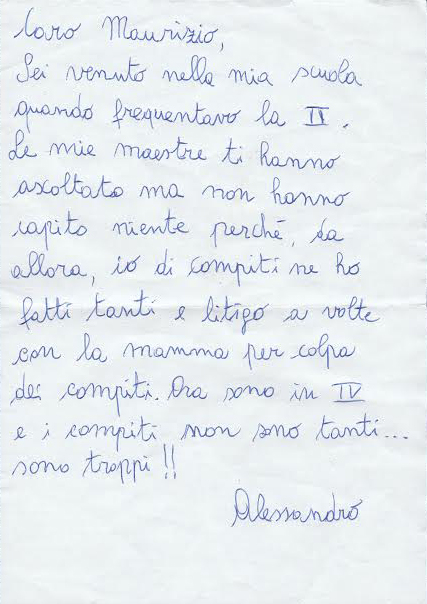 Caro Maurizio,
Sei venuto nella mia scuola
quando frequentavo la II.
Le mie maestre ti hanno
ascoltato ma non hanno
capito niente perché, da
allora, io di compiti ne ho
fatti tanti e litigo a volte
con la mamma per colpa
dei compiti. Ora sono in IV
e i compiti non sono tanti...
sono troppi!!
Alessandro